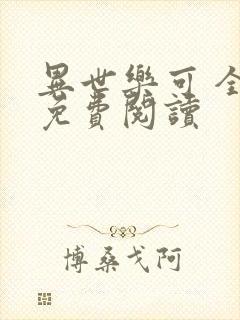 異世樂可 全
免費閱讀
博桑戈阿